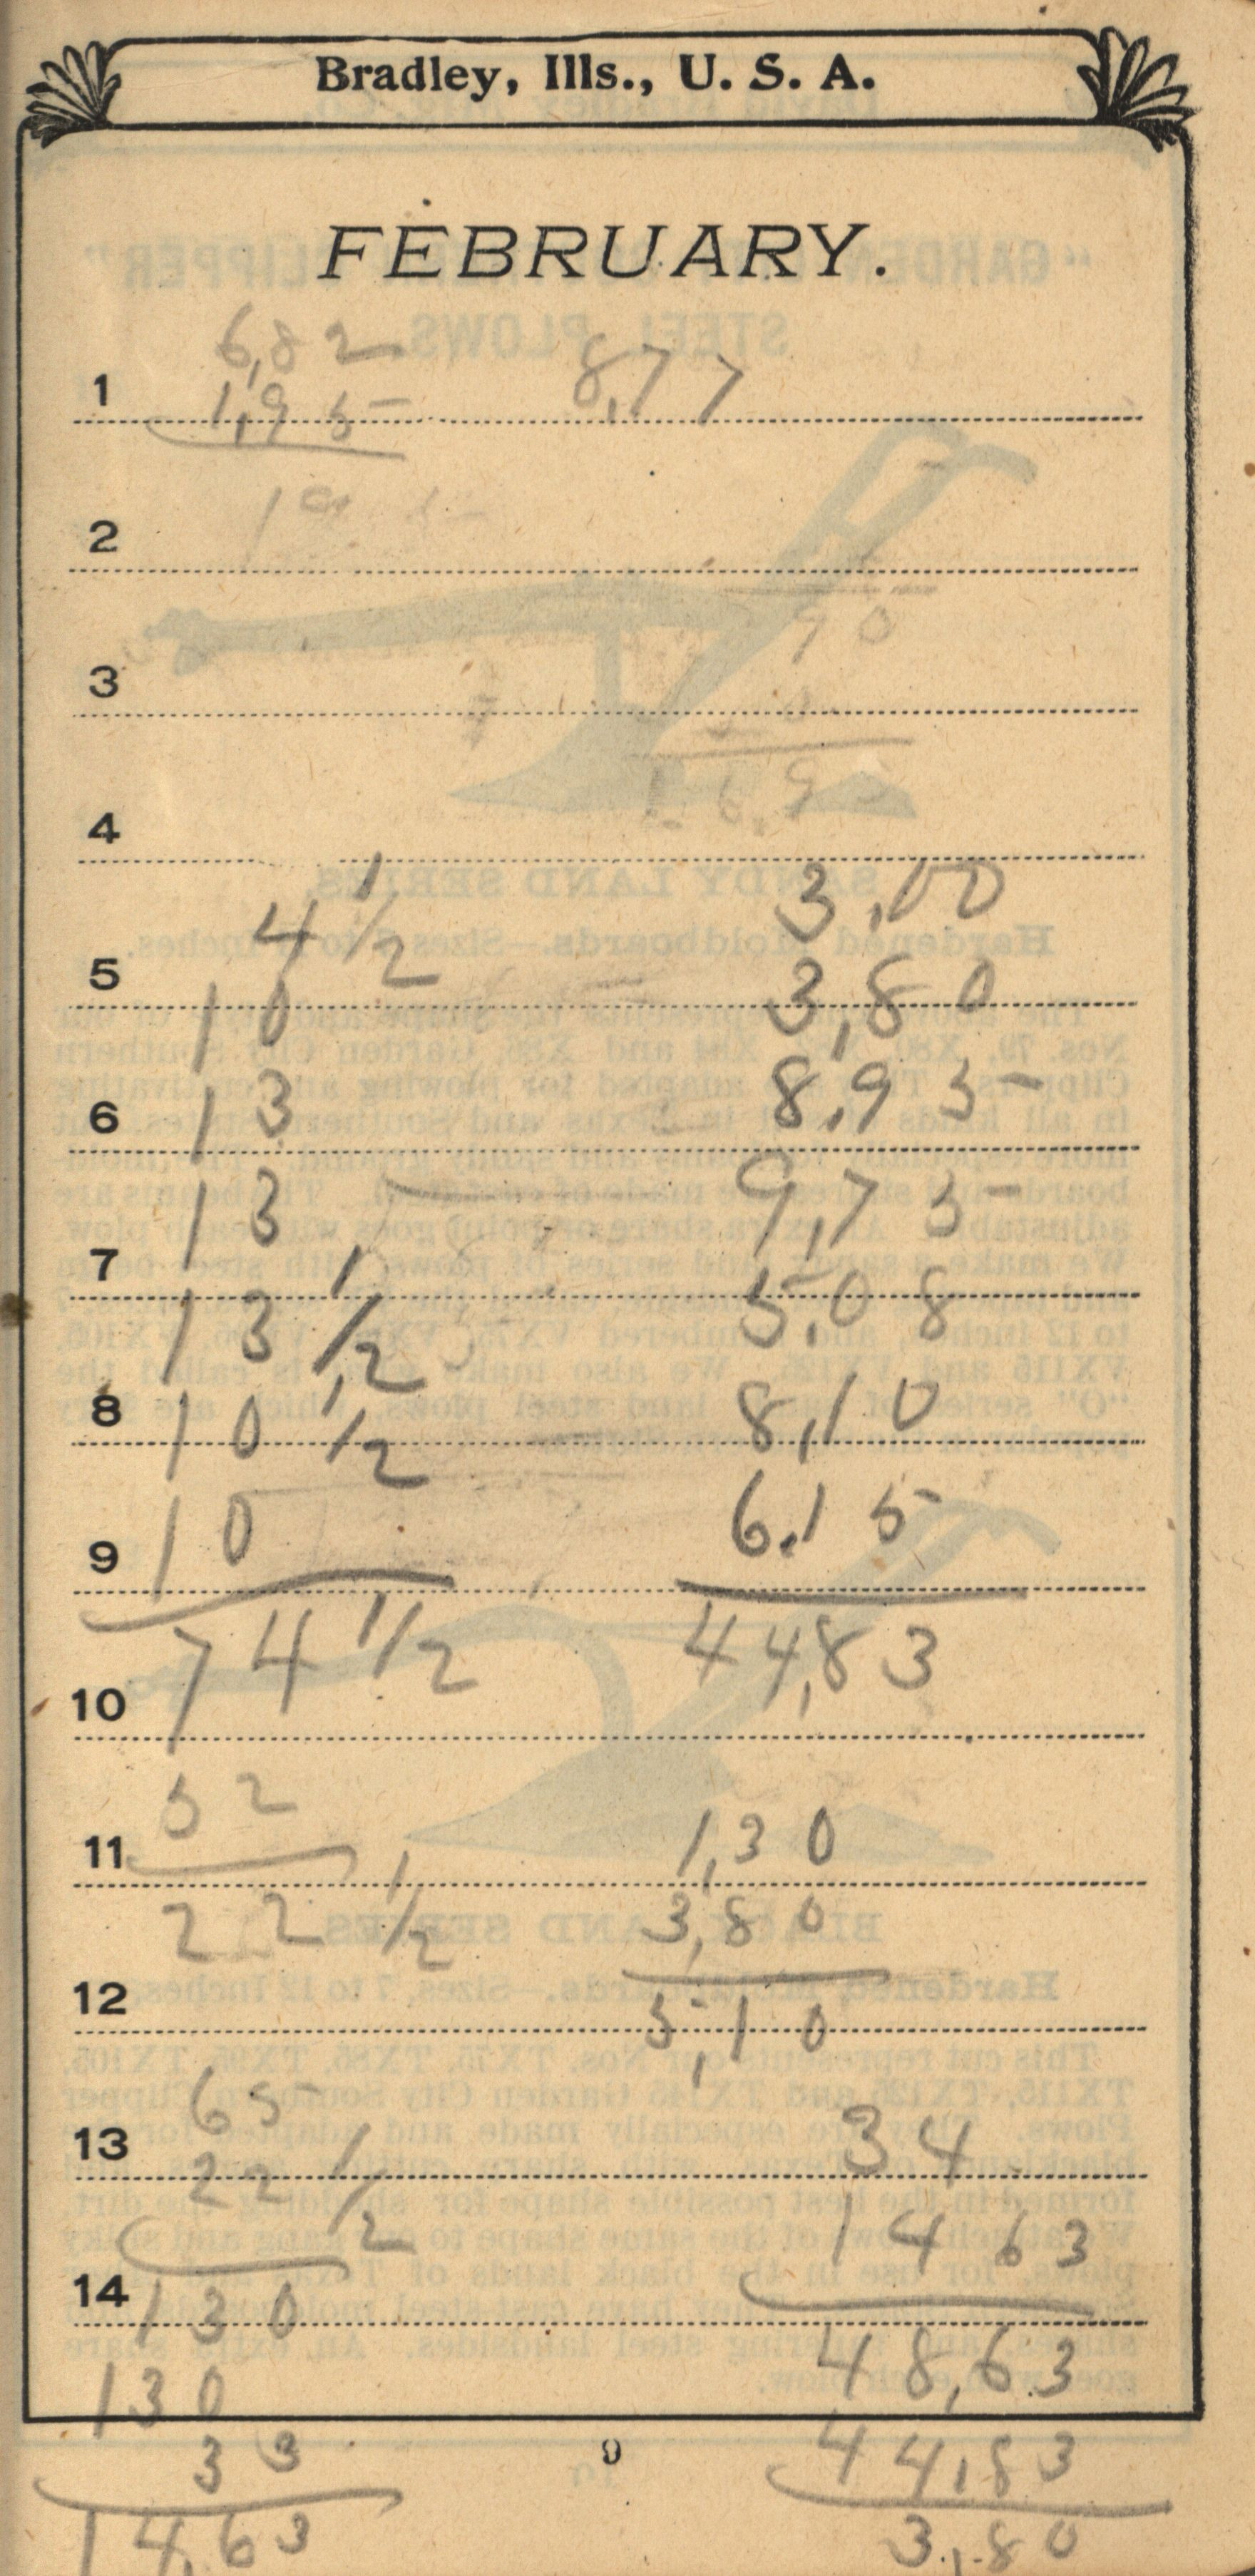 Bradley, Ills., U. S. A.
FEBRUARY.
6,82
1 1,95 8,77
2
3
4
4 1/2 3,00
5
10 3,80
6 13 8,95
13 9,75
7
13 1/2 5,08
8
10 1/2 8,10
10 6,15
9
74 1/2 44,83
10
52
11 1,30
22 1/2 3,80
12
5,10
65
13 34
22 1/2
14 63
14
130
48,63
130
9
33 44,83
14,63 3,80